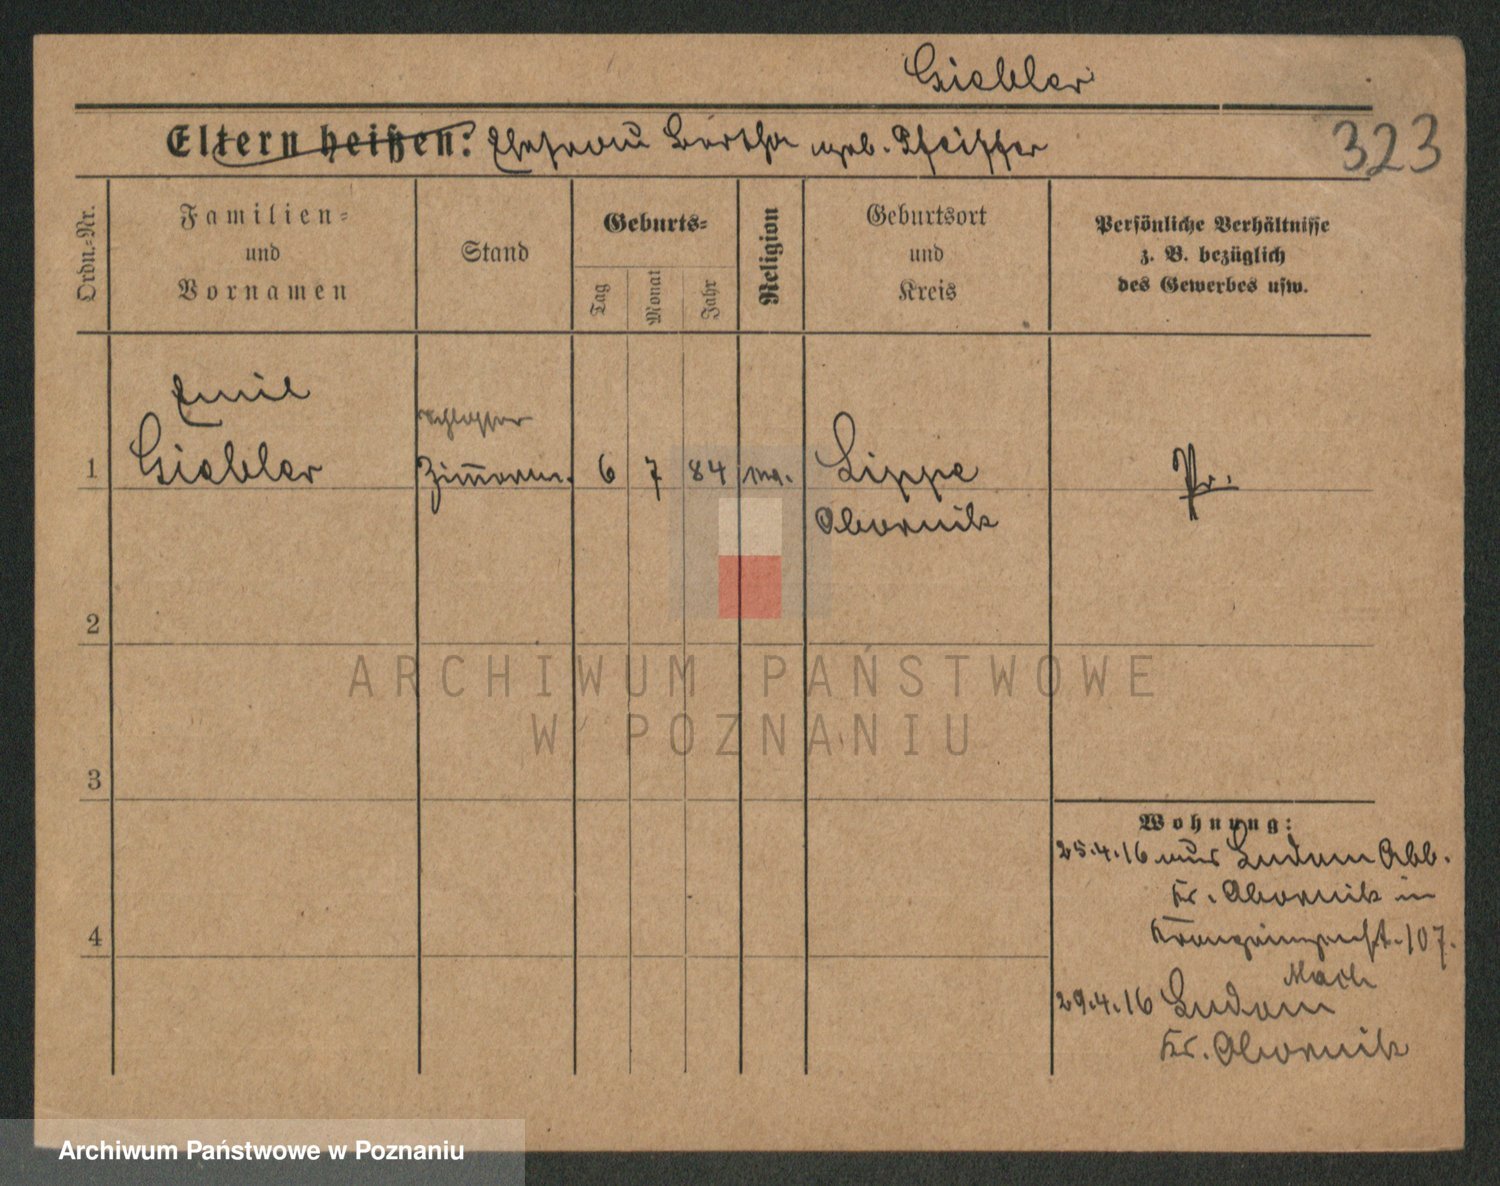 Giebler
323
Eltern heißen: Ehefrau Bertha geb. Pfeiffer
Ordn.-Nr.
Familien-
und
Vornamen
Stand
Geburts-
Tag
Monat
Jahr
Religion
Geburtsort
und
Kreis
Persönliche Verhältnisse
z. B. bezüglich
des Gewerbes usw.
Emil
Schlosser
1 Giebler Zimmerm. 6 7 84 Lippe Pr.
Obornik
2
ARCHIWUM PAŃSTWOWE
W POZNANIU
3
Wohnung:
25.4.16 aus Ludom Abb.
Kr. Obornik in
Kronprinzenst. 107.
Nach
4
29.4.16 Ludom
Kr. Obornik
Archiwum Państwowe w Poznaniu